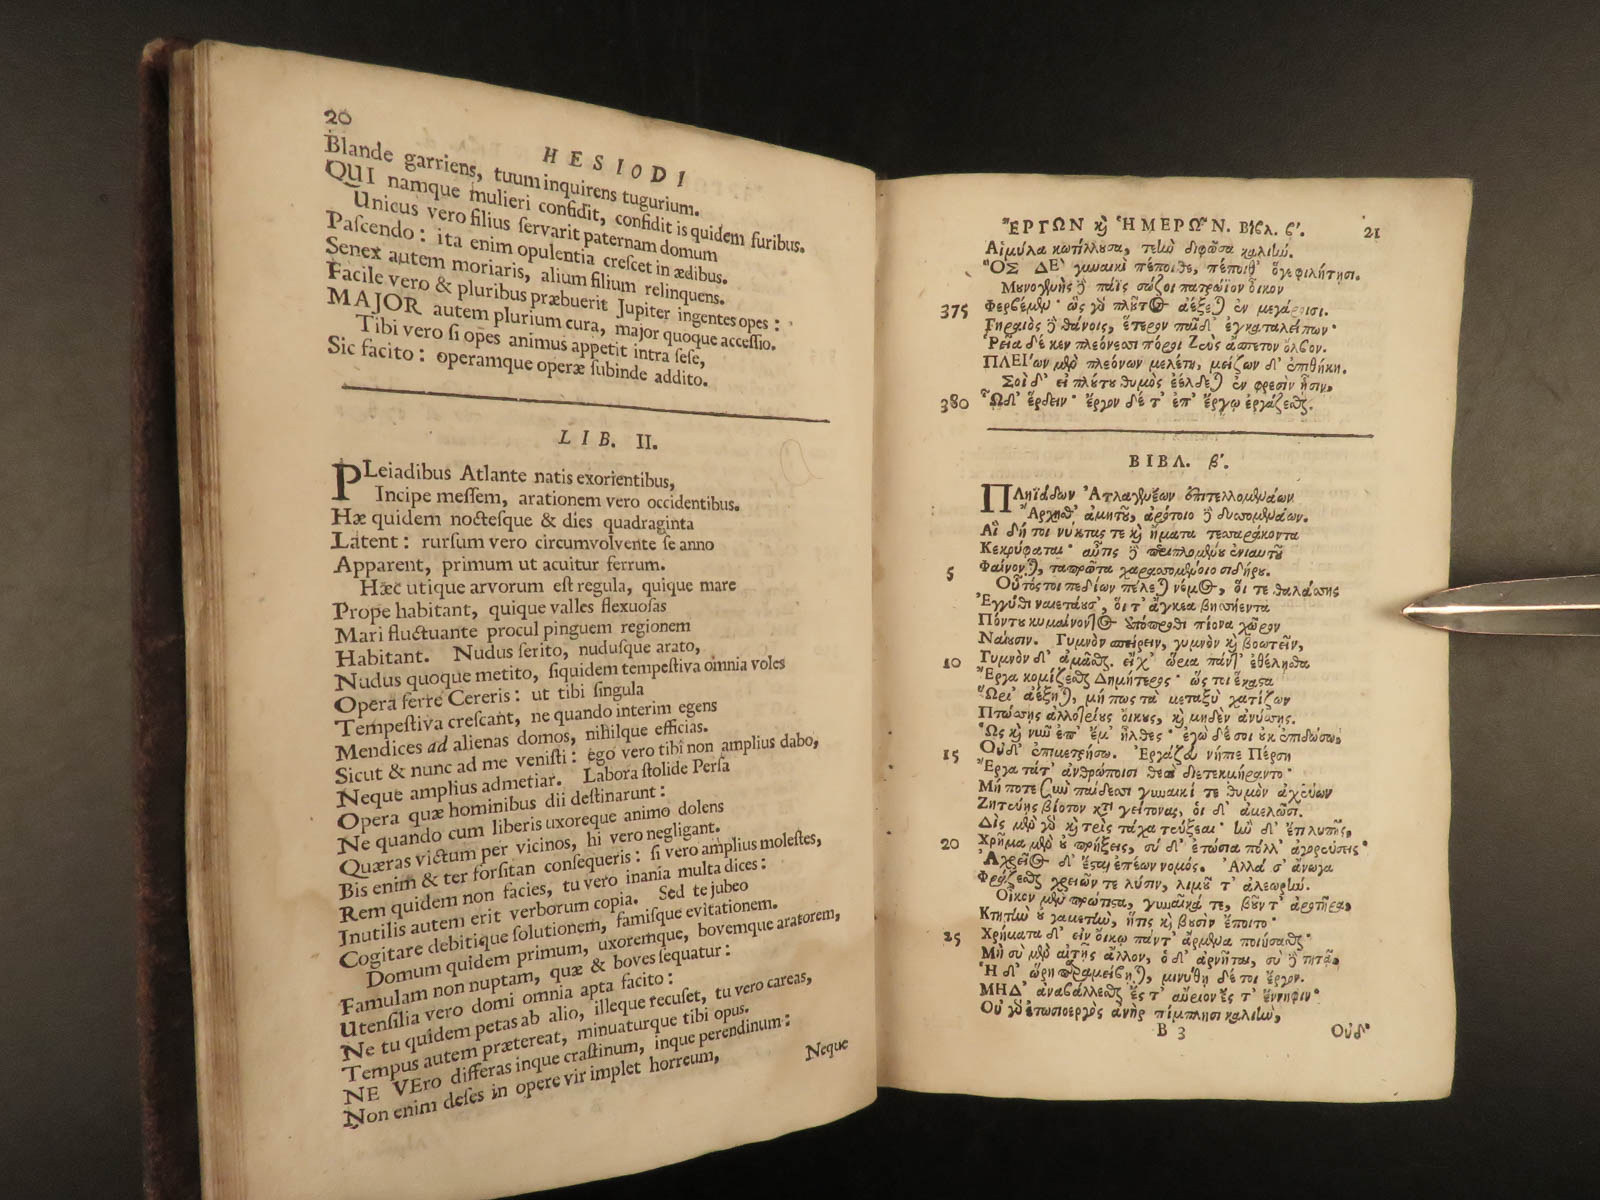 20
HESIODI
Blande garriens, tuum inquirens tugurium.
QUI namque mulieri confidit, confidit is quidem furibus.
Unicus vero filius ſervarit paternam domum
Paſcendo: ita enim opulentia creſcet in ædibus.
Senex autem moriaris, alium filium relinquens.
Facile vero & pluribus præbuerit Jupiter ingentes opes:
MAJOR autem plurium cura, major quoque acceſſio.
Tibi vero ſi opes animus appetit intra ſeſe,
Sic facito: operamque operæ ſubinde addito.
LIB. II.
PLeiadibus Atlante natis exorientibus,
Incipe meſſem, arationem vero occidentibus.
Hæ quidem noctesque & dies quadraginta
Latent: rurſum vero circumvolvente ſe anno
Apparent, primum ut acuitur ferrum.
Hæc utique arvorum eſt regula, quique mare
Prope habitant, quique valles flexuoſas
Mari fluctuante procul pinguem regionem
Habitant. Nudus ſerito, nudusque arato,
Nudus quoque metito, ſiquidem tempeſtiva omnia voles
Opera ferre Cereris: ut tibi ſingula
Tempeſtiva creſcant, ne quando interim egens
Mendices ad alienas domos, nihilque efficias.
Sicut & nunc ad me veniſti: ego vero tibi non amplius dabo,
Neque amplius admetiar. Labora ſtolide Perſa
Opera quæ hominibus dii deſtinarunt:
Ne quando cum liberis uxoreque animo dolens
Quæras victum per vicinos, hi vero negligant.
Bis enim & ter forſitan conſequeris: ſi vero amplius moleſtes,
Rem quidem non facies, tu vero inania multa dices:
Inutilis autem erit verborum copia. Sed te jubeo
Cogitare debitique ſolutionem, famiſque evitationem.
Domum quidem primum, uxoremque, bovemque aratorem,
Famulam non nuptam, quæ & boves ſequatur:
Utenſilia vero domi omnia apta facito:
Ne tu quidem petas ab alio, illeque recuſet, tu vero careas,
Tempus autem prætereat, minuaturque tibi opus.
NE VEro differas inque craſtinum, inque perendinum:
Non enim deſes in opere vir implet horreum,
Neque
ἜΡΓΩΝ ϗ ἩΜΕΡΩ͂Ν. Βιβλ. β'. 21
Αἱμύλα κωτίλλουσα, τεὴν διφῶσα καλιήν.
Ὃς ΔῈ γυναικὶ πέποιθε, πέποιθ' ὅγε φιλήτησι.
Μουνογενὴς δὲ παῖς σώζοι πατρώϊον οἶκον
375 Φερβέμεν· ὣς γὸ πλοῦτος ἀέξεται ἐν μεγάροισι.
Γηραιὸς δὲ θάνοις, ἕτερον παῖδ' ἐγκαταλείπων·
Ῥεῖα δέ κεν πλεόνεσσι πόροι Ζεὺς ἄσπετον ὄλβον.
ΠΛΕΊων μὲν πλεόνων μελέτη, μείζων δ' ἐπιθήκη.
Σοὶ δ' εἰ πλούτου θυμὸς ἐέλδεται ἐν φρεσὶν ᾗσιν,
380 Ὧδ' ἕρδειν· ἔργον δέ τ' ἐπ' ἔργῳ ἐργάζεσθαι.
ΒΙΒΛ. β'.
Πληϊάδων Ἀτλαγενέων ἐπιτελλομενάων
Ἄρχεσθ' ἀμητοῦ, ἀρότοιο δὲ δυσομενάων.
Αἳ δή τοι νύκτας τε ϗ ἤματα τεσσαράκοντα
Κεκρύφαται· αὖτις δὲ περιπλομένου ἐνιαυτοῦ
5 Φαίνονται, τὰ πρῶτα χαρασσομένοιο σιδήρου.
Οὗτός τοι πεδίων πέλεται νόμος, οἵ τε θαλάσσης
Ἐγγύθι ναιετάουσ', οἵ τ' ἄγκεα βησσήεντα
Πόντου κυμαίνοντος ἀπόπροθι πίονα χῶρον
Ναίουσιν. Γυμνὸν σπείρειν, γυμνὸν ϗ βοωτεῖν,
10 Γυμνὸν δ' ἀμᾶσθαι. εἴχ' ὥρια πάντ' ἐθέλησθα
Ἔργα κομίζεσθαι Δημήτερος· ὥς τοι ἕκαστα
Ὥρι' ἀέξηται, μή πως τὰ μεταξὺ χατίζων
Πτώσσῃς ἀλλοτρίους οἴκους, ϗ μηδὲν ἀνύσσῃς.
Ὡς ϗ νῦν ἐπ' ἔμ' ἦλθες· ἐγὼ δέ σοι οὐκ ἐπιδώσω,
15 Οὐδ' ἐπιμετρήσω. Ἐργάζευ νήπιε Πέρση
Ἔργα τά τ' ἀνθρώποισι θεοὶ διετεκμήραντο·
Μή ποτε σὺν παίδεσσι γυναικί τε θυμὸν ἀχεύων
Ζητεύῃς βίοτον κατὰ γείτονας, οἱ δ' ἀμελῶσι.
Δὶς μὲν γὸ ϗ τρὶς τάχα τεύξεαι· ἢν δ' ἔτι λυπῇς,
20 Χρῆμα μὲν οὐ πρήξεις, σὺ δ' ἐτώσια πόλλ' ἀγορεύσεις·
Ἀχρεῖος δ' ἔσται ἐπέων νομός. Ἀλλά σ' ἄνωγα
Φράζεσθαι χρειῶν τε λύσιν, λιμοῦ τ' ἀλεωρήν.
Οἶκον μὲν πρώτιστα, γυναῖκά τε, βοῦν τ' ἀροτῆρα,
Κτητὴν οὐ γαμετὴν, ἥτις ϗ βουσὶν ἕποιτο·
25 Χρήματα δ' εἰν οἴκῳ πάντ' ἄρμενα ποιήσασθαι·
Μὴ σὺ μὲν αἰτῇς ἄλλον, ὁ δ' ἀρνῆται, σὺ δὲ τητᾷ,
Ἡ δ' ὥρη παραμείβηται, μινύθῃ δέ τοι ἔργον.
ΜΗΔ' ἀναβάλλεσθαι ἔς τ' αὔριον ἔς τ' ἔννηφιν·
Οὐ γὸ ἐτωσιοεργὸς ἀνὴρ πίμπλησι καλιὴν,
B 3
Οὐδ'